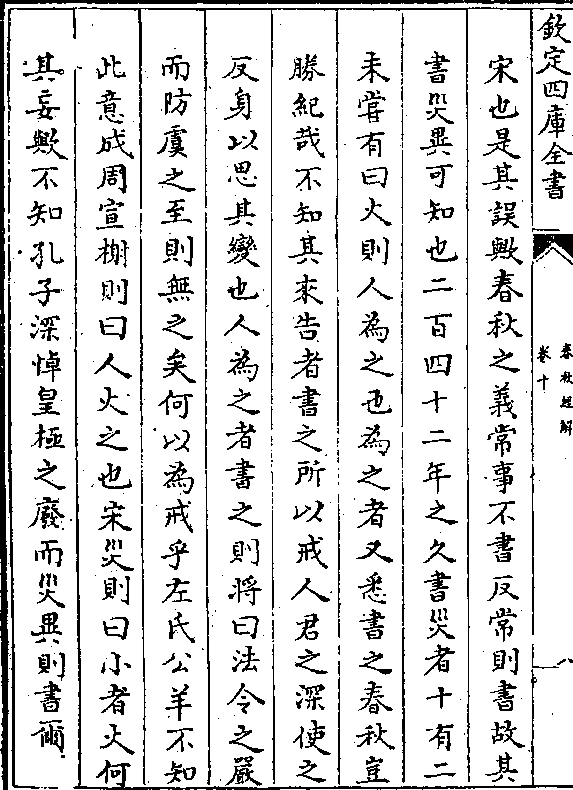 欽定四庫全書
春秋經解
卷十
八
宋也是其誤歟春秋之義常事不書反常則書故其
書災異可知也二百四十二年之久書災者十有二
未嘗有曰火則人為之也為之者又悉書之春秋豈
勝紀哉不知其來告者書之所以戒人君之深使之
反身以思其變也人為之者書之則將曰法令之嚴
而防虞之至則無之矣何以為戒乎左氏公羊不知
此意成周宣榭則曰人火之也宋災則曰小者火何
其妄歟不知孔子深悼皇極之廢而災異則書爾